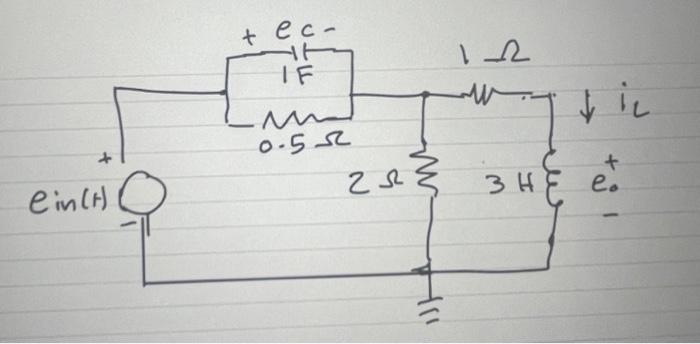 + e c -
1 F
0.5 Ω
1 Ω
↓ iL
+
ein(t)
-
2 Ω
3 H
+
eo
-